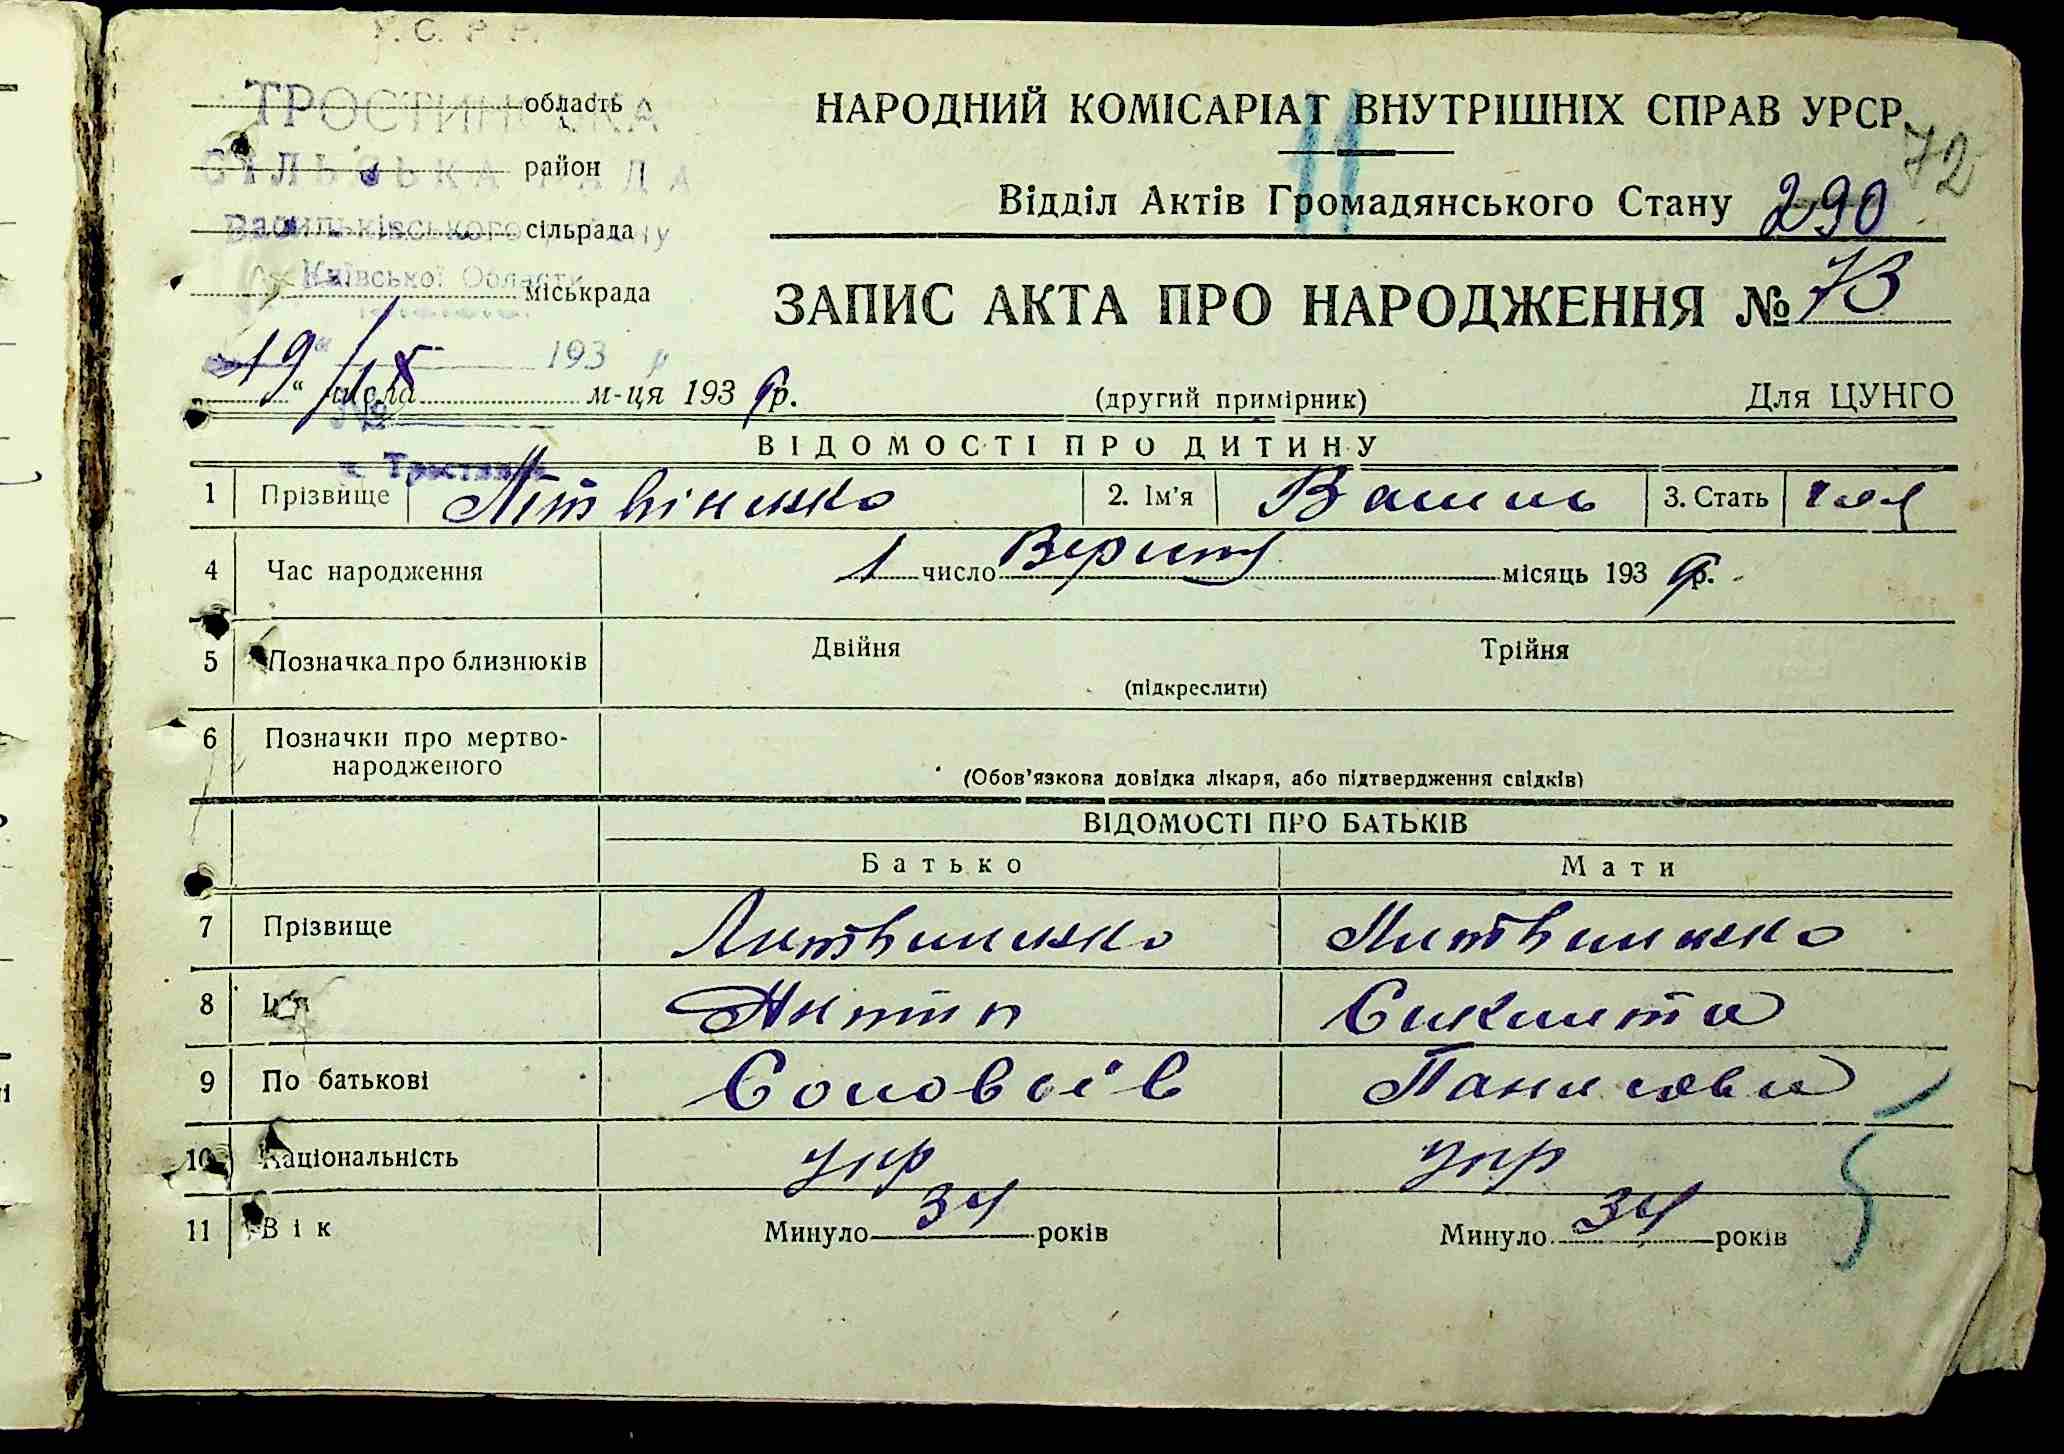 У. С. Р. Р.
ТРОСТИНСЬКА
СІЛЬСЬКА РАДА
Васильківського району
Київської Области
193
№
с. Тростинка
область
район
сільрада
міськрада
"19" ІХ числа м-ця 1939 р.
НАРОДНИЙ КОМІСАРІАТ ВНУТРІШНІХ СПРАВ УРСР
72
11
Відділ Актів Громадянського Стану 290
ЗАПИС АКТА ПРО НАРОДЖЕННЯ № 73
(другий примірник) Для ЦУНГО
ВІДОМОСТІ ПРО ДИТИНУ
1 Прізвище Літвіненко 2. Ім'я Василь 3. Стать чол
4 Час народження 1 число Верисня місяць 1939 р.
5 Позначка про близнюків Двійня Трійня
(підкреслити)
6 Позначки про мертво-
народженого
(Обов'язкова довідка лікаря, або підтвердження свідків)
ВІДОМОСТІ ПРО БАТЬКІВ
Батько Мати
7 Прізвище Литвиненко Литвиненко
8 Ім'я Антип
9 По батькові Соловєів Панасова
10 Національність укр укр
11 Вік Минуло 34 років Минуло 34 років